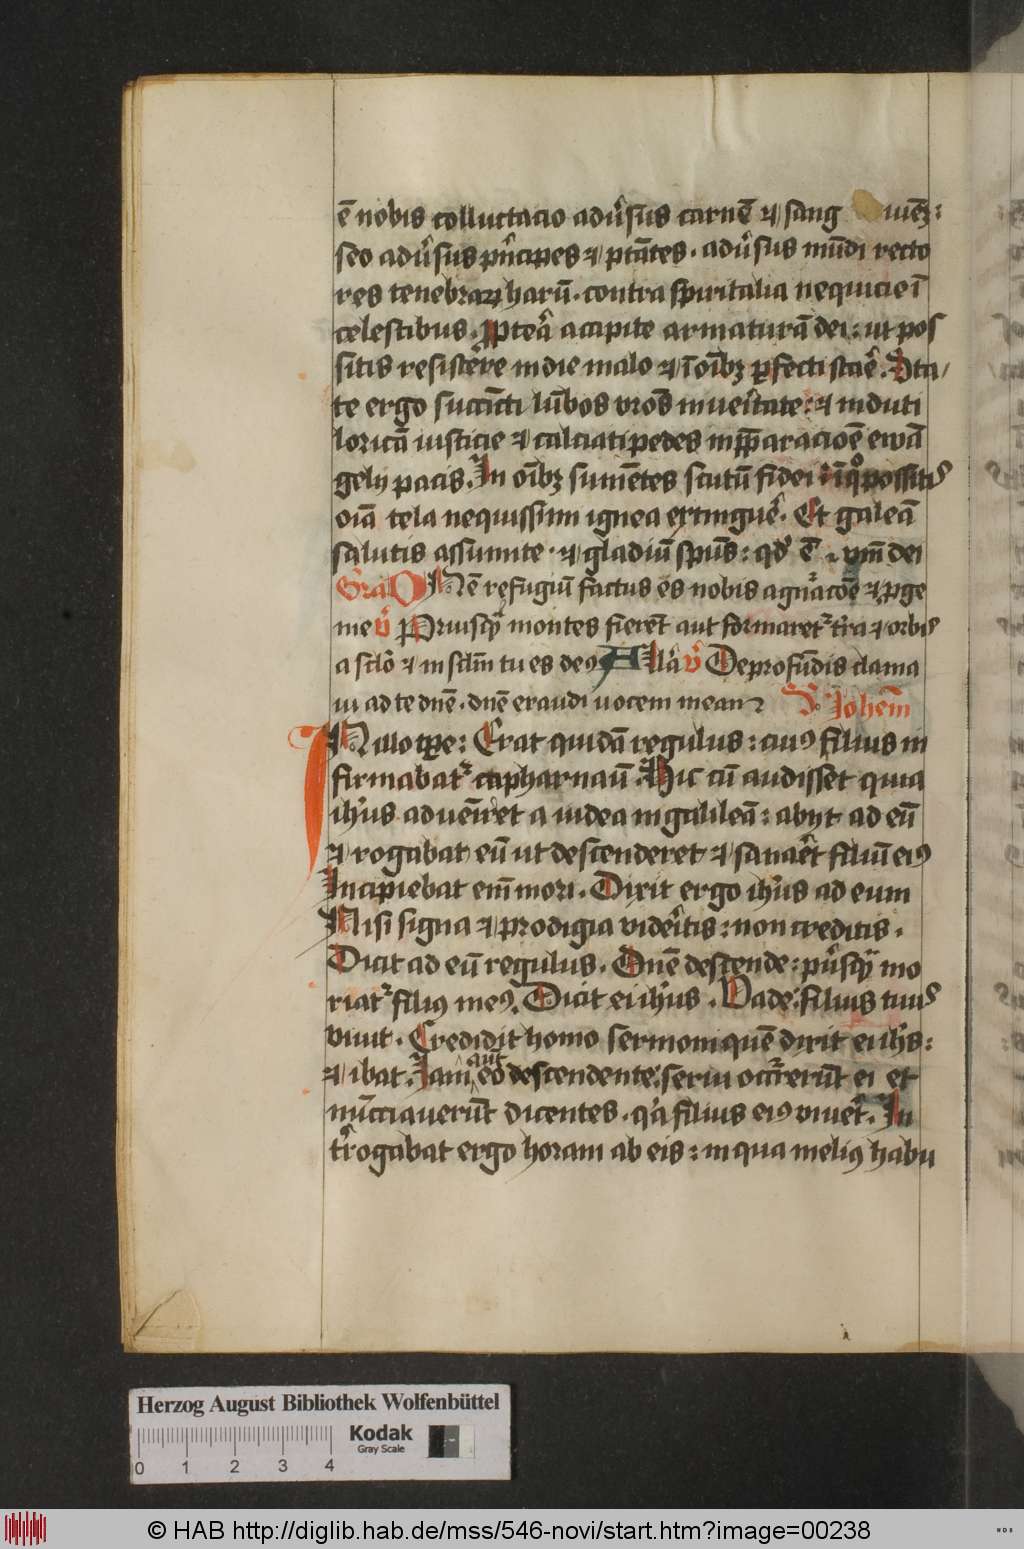 ē nobis colluctacio adūsus carnē ⁊ sang uinē:
sed adūsus pͥncipes ⁊ ptātes. adūsus mūdi recto
res tenebraꝝ harū. contra spiritalia nequicie ī
celestibus. Ꝓpteā accipite armaturā dei: ut pos
sitis resistere in die malo ⁊ ī oībꝫ ꝑfecti stāē. Sta/
te ergo succincti lūbos vros in ueritate: ⁊ induti
loricā iusticie ⁊ calciati pedes in p̄paracioē ewā
gelij pacis. In oībꝫ sumētes scutū fidei in quo possitis
oīa tela nequissimi ignea extinguē. Et galeā
salutis assumite. ⁊ gladiū spūs: qd̓ ē ūm dei
Gra Dn̄e refugiū factus es nobis a gn̄acōe ⁊ ꝓge
nie v̓ Priusqͣ montes fierēt aut formaretͬ tͬra ⁊ orbis
a sclō ⁊ in sclm̄ tu es deꝰ Allā v̓ De profūdis clama
ui ad te dn̄e. dn̄e exaudi uocem meam S. Johem̄
IN illo tꝑe: Erat quidā regulus: cuiꝰ filius in
firmabatͬ capharnaū. Hic cū audisset quia
ihūs aduēiret a iudea in galileā: abijt ad eū
⁊ rogabat eū ut descenderet ⁊ sanaēt filiū eiꝰ
Incipiebat eīm mori. Dixit ergo ihūs ad eum
Nisi signa ⁊ prodigia videritis: non creditis.
Dicit ad eū regulus. Dn̄e descende: pͥusqͣ mo
riatͬ filiꝰ meꝰ. Dicit ei ihūs. Vade: filius tuus
viuit. Credidit homo sermoni quē dixit ei ihs̄:
⁊ ibat. Jam aut eo descendente: serui occͬrerūt ei et
nūcciauerūt dicentes. qͣ filius eiꝰ viueͬt. In
tͬrogabat ergo horam ab eis: in qua meliꝰ habu
Herzog August Bibliothek Wolfenbüttel
0 1 2 3 4
Kodak
Gray Scale
© HAB http://diglib.hab.de/mss/546-novi/start.htm?image=00238